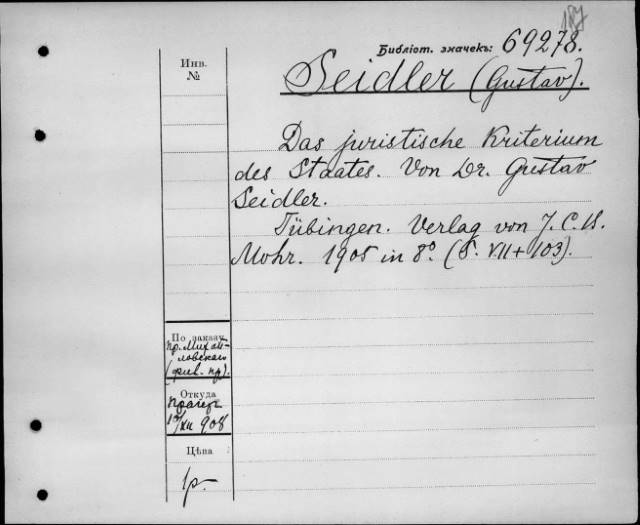 187
Библіот. значекъ: 69278.
Инв.
№
Seidler (Gustav).
Das juristische Kriterium
des Staates. Von Dr. Gustav
Seidler.
Tübingen. Verlag von J. C. B.
Mohr. 1905 in 8º. (S. VII + 103).
По заказу
пр. Михай-
ловскаго
Откуда
908
Цѣна
1р.